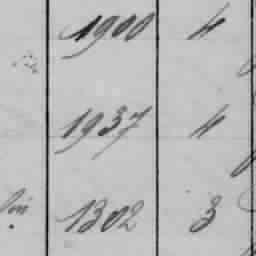 1900 4
1937 4
1302 3